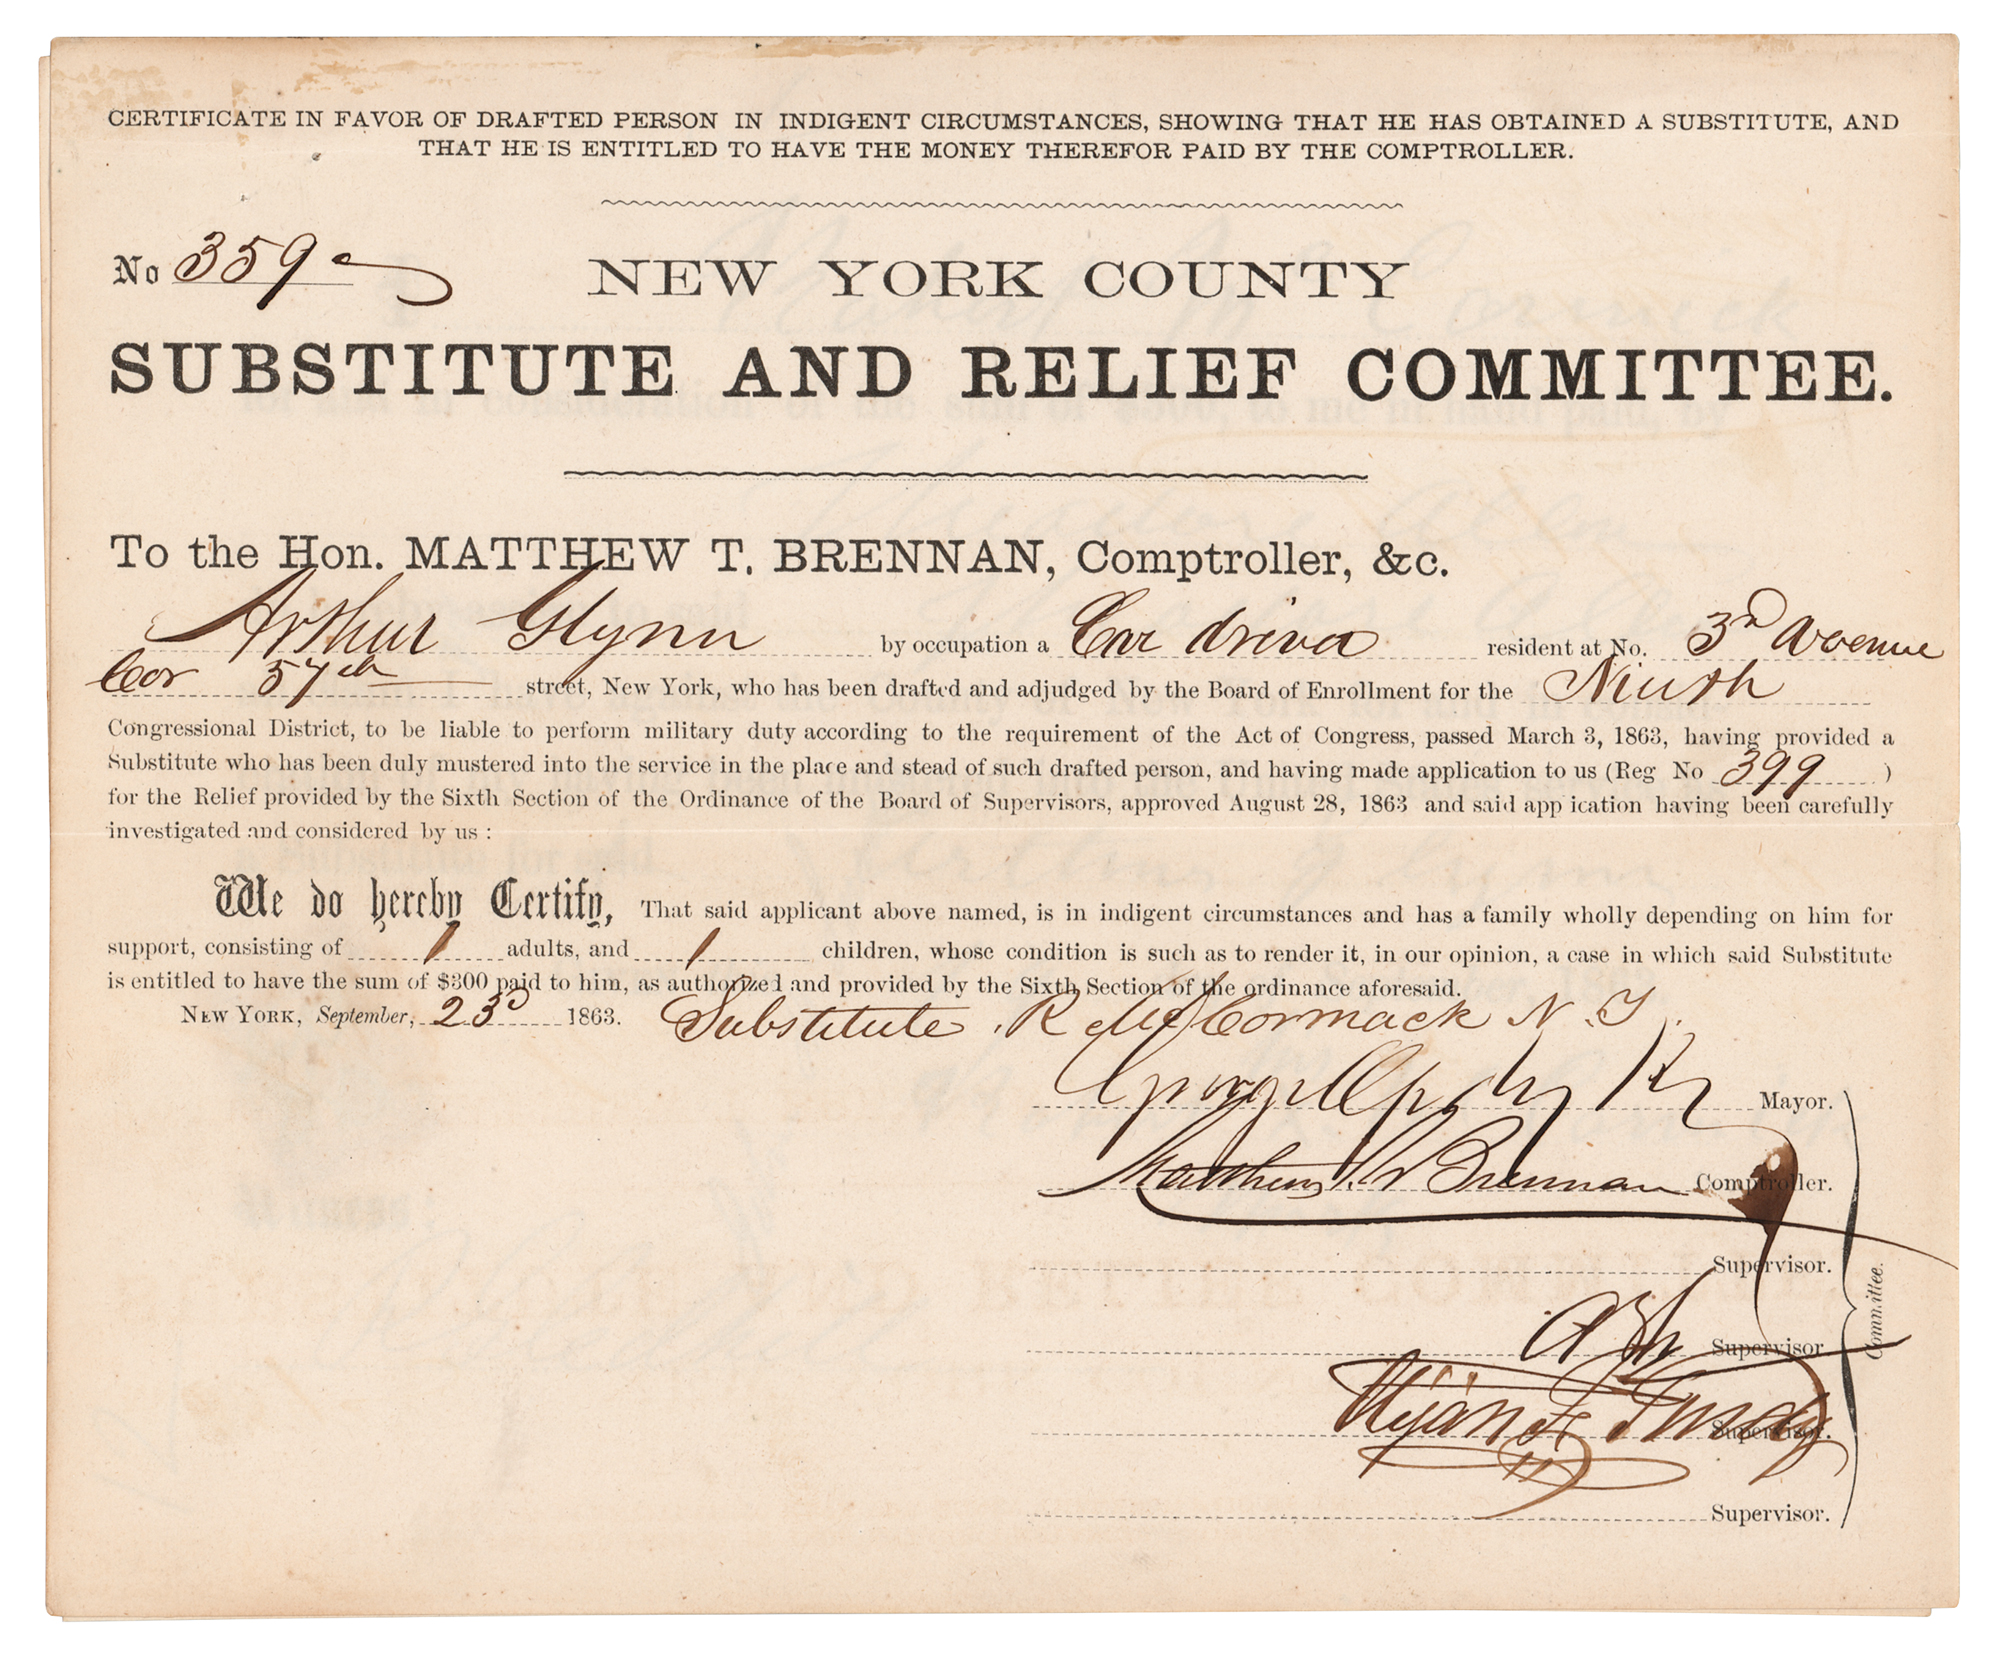 CERTIFICATE IN FAVOR OF DRAFTED PERSON IN INDIGENT CIRCUMSTANCES, SHOWING THAT HE HAS OBTAINED A SUBSTITUTE, AND
THAT HE IS ENTITLED TO HAVE THE MONEY THEREFOR PAID BY THE COMPTROLLER.
No 359
NEW YORK COUNTY
SUBSTITUTE AND RELIEF COMMITTEE.
To the Hon. MATTHEW T. BRENNAN, Comptroller, &c.
Arthur Glynn by occupation a Car driver resident at No. 3d Avenue
Cor 57th street, New York, who has been drafted and adjudged by the Board of Enrollment for the Ninth
Congressional District, to be liable to perform military duty according to the requirement of the Act of Congress, passed March 3, 1863, having provided a
Substitute who has been duly mustered into the service in the place and stead of such drafted person, and having made application to us (Reg No 399 )
for the Relief provided by the Sixth Section of the Ordinance of the Board of Supervisors, approved August 28, 1863 and said app ication having been carefully
investigated and considered by us :
We do hereby Certify, That said applicant above named, is in indigent circumstances and has a family wholly depending on him for
support, consisting of 1 adults, and 1 children, whose condition is such as to render it, in our opinion, a case in which said Substitute
is entitled to have the sum of $300 paid to him, as authorized and provided by the Sixth Section of the ordinance aforesaid.
NEW YORK, September, 23d 1863. Substitute R McCormack N.Y.
George Opdyke Mayor.
Matthew T. Brennan Comptroller.
Supervisor.
Supervisor
Supervisor.
Supervisor.
Committee.